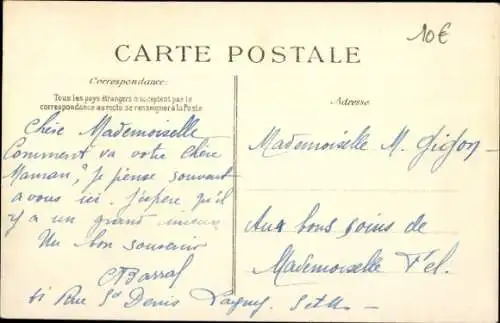 10€
CARTE POSTALE
Correspondance:
Tous les pays étrangers n'acceptent pas la
correspondance au recto se renseigner à la Poste
Adresse
Chère Mademoiselle
Comment va votre Chère
Maman, Je pense souvent
a vous ici. J'espère qu'il
y a un grand mieux
Un bon souvenir
CBarraf
61 Rue St Denis Lagny. S et M
Mademoiselle M.
Aux bons soins de
Mademoiselle Fel.